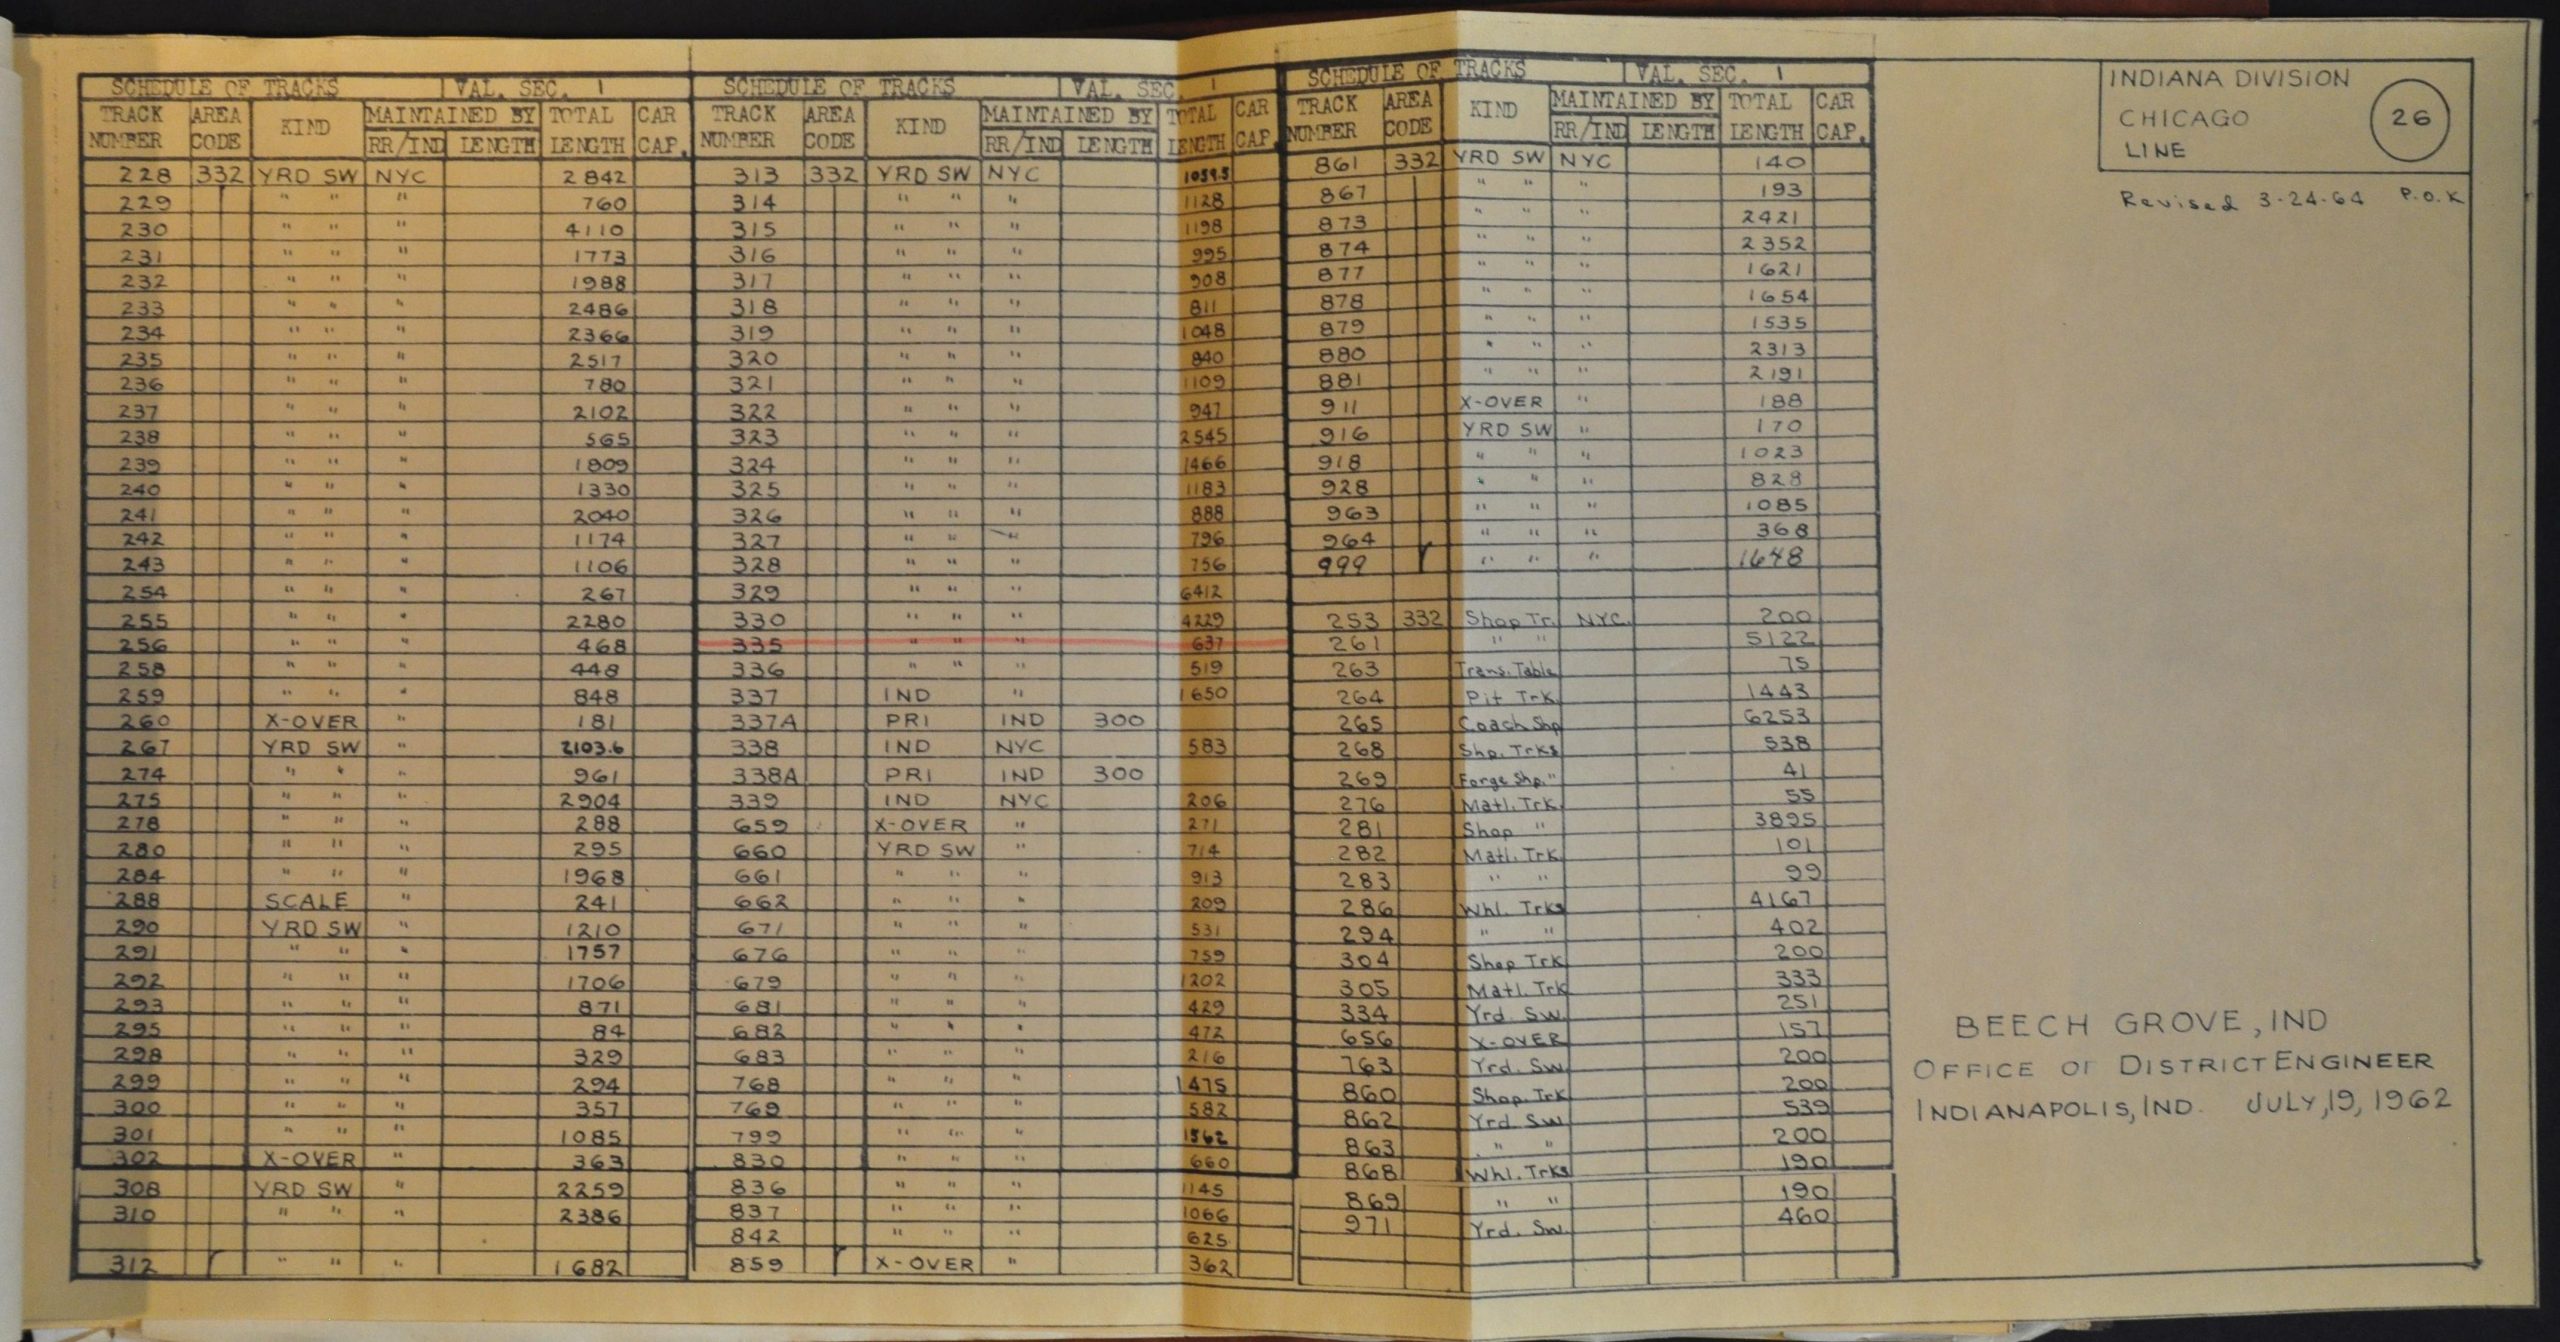 SCHEDULE OF TRACKS VAL. SEC. 1
TRACK NUMBER AREA CODE KIND MAINTAINED BY RR/IND LENGTH TOTAL LENGTH CAR CAP.
228 332 YRD SW NYC 2842
229 " " " 760
230 " " " 4110
231 " " " 1773
232 " " " 1988
233 " " " 2486
234 " " " 2366
235 " " " 2517
236 " " " 780
237 " " " 2102
238 " " " 565
239 " " " 1809
240 " " " 1330
241 " " " 2040
242 " " " 1174
243 " " " 1106
254 " " " 267
255 " " " 2280
256 " " " 468
258 " " " 448
259 " " " 848
260 X-OVER " 181
267 YRD SW " 2103.6
274 " " " 961
275 " " " 2904
278 " " " 288
280 " " " 295
284 " " " 1968
288 SCALE " 241
290 YRD SW " 1210
291 " " " 1757
292 " " " 1706
293 " " " 871
295 " " " 84
298 " " " 329
299 " " " 294
300 " " " 357
301 " " " 1085
302 X-OVER " 363
308 YRD SW " 2259
310 " " " 2386
312 " " " 1682
SCHEDULE OF TRACKS VAL. SEC. 1
TRACK NUMBER AREA CODE KIND MAINTAINED BY RR/IND LENGTH TOTAL LENGTH CAR CAP.
313 332 YRD SW NYC 1059.5
314 " " " 1128
315 " " " 1198
316 " " " 995
317 " " " 908
318 " " " 811
319 " " " 1048
320 " " " 840
321 " " " 1109
322 " " " 947
323 " " " 2545
324 " " " 1466
325 " " " 1183
326 " " " 888
327 " " " 796
328 " " " 756
329 " " " 6412
330 " " " 4229
335 " " " 637
336 " " " 519
337 IND " 1650
337A PRI IND 300
338 IND NYC 583
338A PRI IND 300
339 IND NYC 206
659 X-OVER " 271
660 YRD SW " 714
661 " " " 913
662 " " " 209
671 " " " 531
676 " " " 759
679 " " " 1202
681 " " " 429
682 " " " 472
683 " " " 216
768 " " " 1475
769 " " " 582
799 " " " 1562
830 " " " 660
836 " " " 1145
837 " " " 1066
842 " " " 625
859 X-OVER " 362
SCHEDULE OF TRACKS VAL. SEC. 1
TRACK NUMBER AREA CODE KIND MAINTAINED BY RR/IND LENGTH TOTAL LENGTH CAR CAP.
861 332 YRD SW NYC 140
867 " " " 193
873 " " " 2421
874 " " " 2352
877 " " " 1621
878 " " " 1654
879 " " " 1535
880 " " " 2313
881 " " " 2191
911 X-OVER " 188
916 YRD SW " 170
918 " " " 1023
928 " " " 828
963 " " " 1085
964 " " " 368
999 " " " 1648
253 332 Shop Tr. NYC 200
261 " " 5122
263 Trans. Table 75
264 Pit Trk 1443
265 Coach Shp 6253
268 Shp. Trks 538
269 Forge Shp. " 41
276 Matl. Trk 55
281 Shop " 3895
282 Matl. Trk 101
283 " " 99
286 Whl. Trks 4167
294 " " 402
304 Shop Trk 200
305 Matl. Trk 333
334 Yrd. Sw. 251
656 X-OVER 157
763 Yrd. Sw. 200
860 Shop. Trk 200
862 Yrd. Sw 539
863 " " 200
868 Whl. Trks 190
869 " " 190
971 Yrd. Sw. 460
INDIANA DIVISION
CHICAGO
LINE
26
Revised 3-24-64 P.O.K
BEECH GROVE, IND
OFFICE OF DISTRICT ENGINEER
INDIANAPOLIS, IND. JULY, 19, 1962